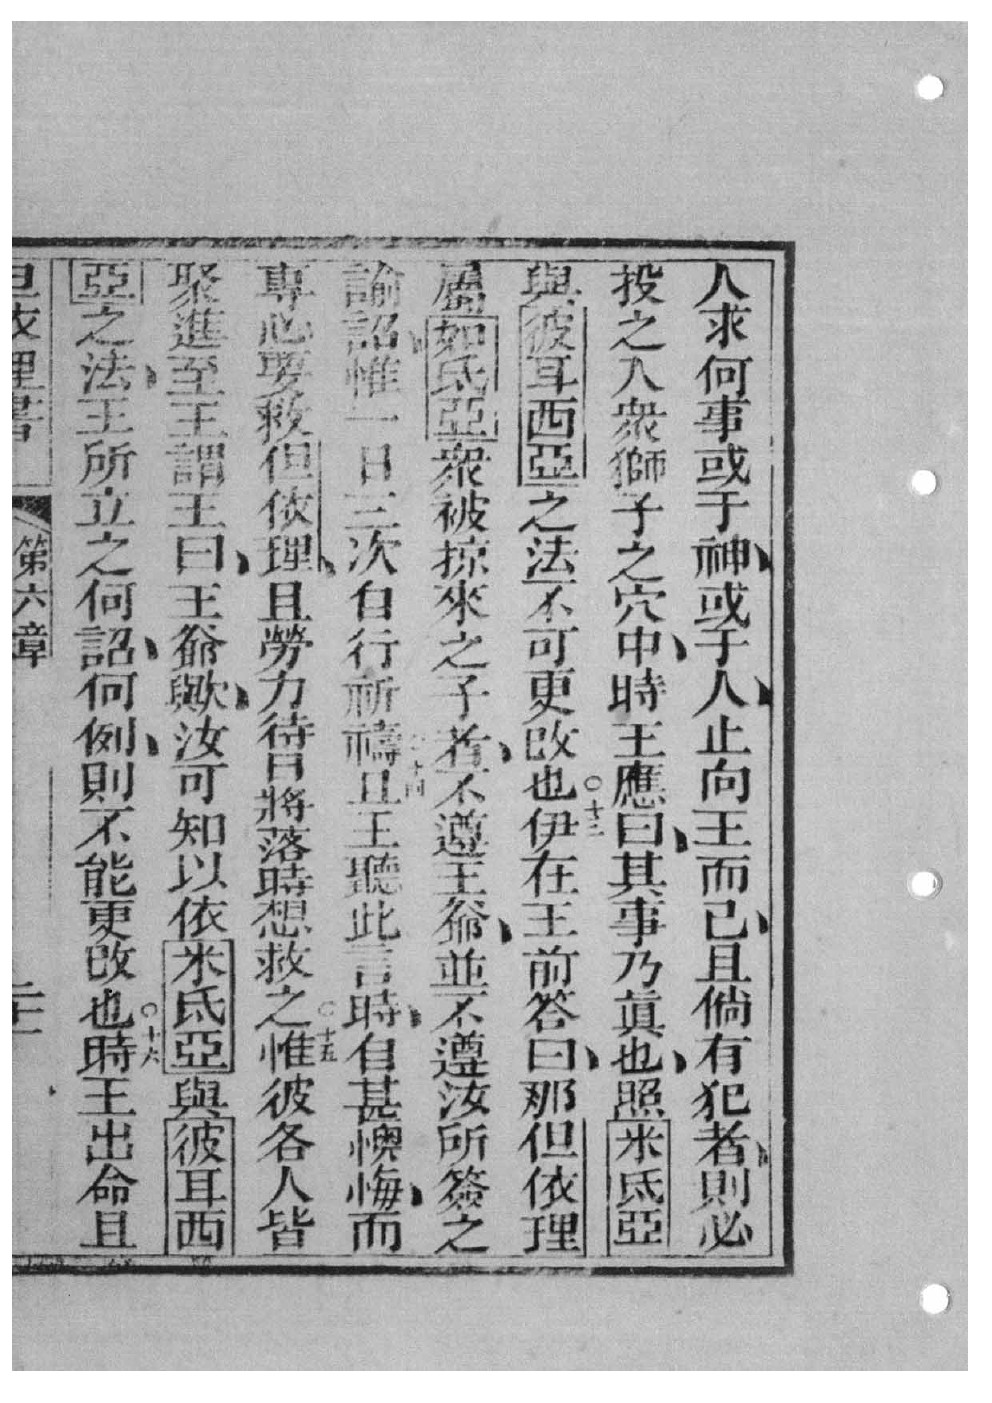 人求何事或于神或于人止向王而已且倘有犯者則必
投之入衆獅子之穴中時王應曰其事乃眞也照米氐亞
與彼耳西亞之法不可更改也○十三伊在王前答曰那但依理
屬如氐亞衆被掠來之子者不遵王爺並不遵汝所簽之
諭詔惟一日三次自行祈禱○十四且王聽此言時自甚懊悔而
專心要救但依理且勞力待日將落時想救之○十五惟彼各人皆
聚進至王謂王曰王爺歟汝可知以依米氐亞與彼耳西
亞之法王所立之何詔何例則不能更改也○十六時王出命且
但依理書 第六章 二十一